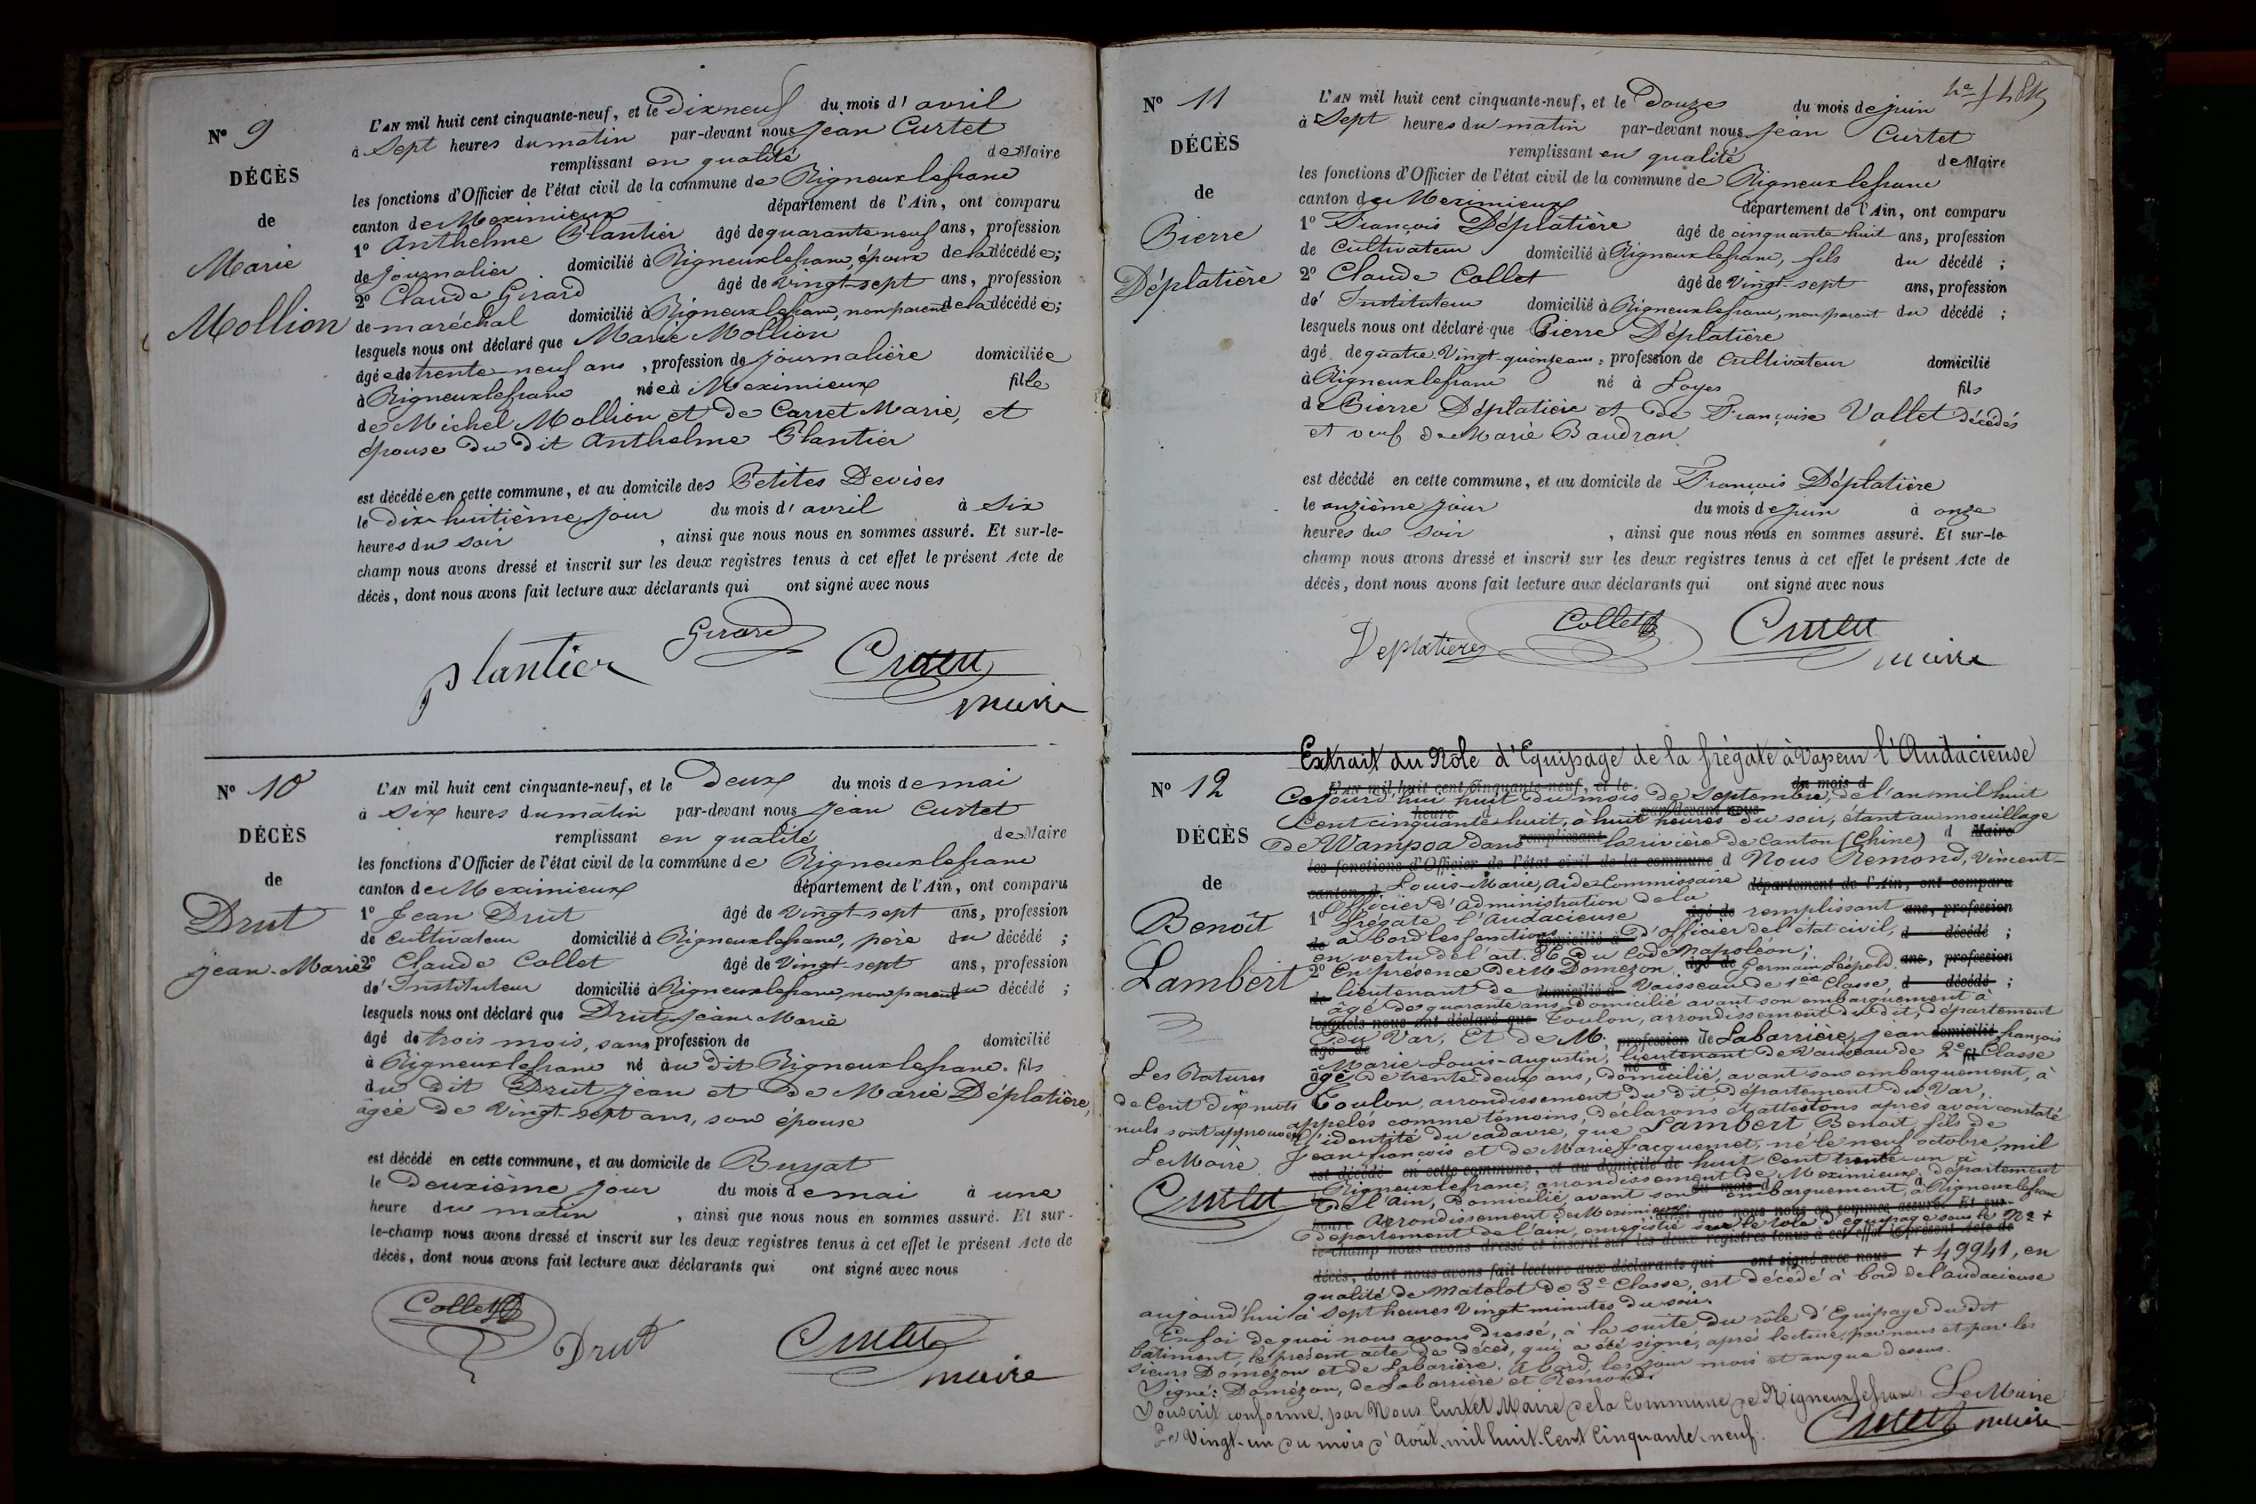 N° 9
DÉCÈS
de
Marie
Mollion
L'AN mil huit cent cinquante-neuf, et le Dixneuf du mois d'avril
à Sept heures du matin par-devant nous Jean Curtet
remplissant en qualité de Maire
les fonctions d'Officier de l'état civil de la commune de Rigneuxlefranc
canton de Meximieux département de l'Ain, ont comparu
1° Anthelme Plantier âgé de quarante neuf ans, profession
de journalier domicilié à Rigneuxlefranc, époux de la décédée;
2° Claude Girard âgé de vingt-sept ans, profession
de maréchal domicilié à Rigneuxlefranc, non parent de la décédée;
lesquels nous ont déclaré que Marie Mollion
âgée de trente-neuf ans, profession de journalière domiciliée
à Rigneuxlefranc née à Meximieux fille
de Michel Mollion et de Carret Marie, et
épouse du dit Anthelme Plantier
est décédée en cette commune, et au domicile des Petites Devises
le Dix-huitième jour du mois d'avril à Six
heures du soir, ainsi que nous nous en sommes assuré. Et sur-le-
champ nous avons dressé et inscrit sur les deux registres tenus à cet effet le présent Acte de
décès, dont nous avons fait lecture aux déclarants qui ont signé avec nous
Girard
plantier Curtet
maire
N° 10
DÉCÈS
de
Drut
Jean-Marie
L'AN mil huit cent cinquante-neuf, et le Deux du mois de mai
à Six heures du matin par-devant nous Jean Curtet
remplissant en qualité de Maire
les fonctions d'Officier de l'état civil de la commune de Rigneuxlefranc
canton de Meximieux département de l'Ain, ont comparu
1° Jean Drut âgé de vingt-sept ans, profession
de cultivateur domicilié à Rigneuxlefranc, père du décédé;
2° Claude Collet âgé de vingt-sept ans, profession
d'Instituteur domicilié à Rigneuxlefranc, non parent du décédé;
lesquels nous ont déclaré que Drut Jean-Marie
âgé de trois mois, sans profession de domicilié
à Rigneuxlefranc né au dit Rigneuxlefranc. fils
du dit Drut Jean et de Marie Déplatière,
âgée de vingt-sept ans, son épouse
est décédé en cette commune, et au domicile de Buyat
le Deuxième jour du mois de mai à une
heure du matin, ainsi que nous nous en sommes assuré. Et sur-
le-champ nous avons dressé et inscrit sur les deux registres tenus à cet effet le présent Acte de
décès, dont nous avons fait lecture aux déclarants qui ont signé avec nous
Collet
Drut Curtet
maire
N° 11
DÉCÈS
de
Pierre
Déplatière
L'AN mil huit cent cinquante-neuf, et le Douze du mois de juin
à Sept heures du matin par-devant nous Jean Curtet
remplissant en qualité de Maire
les fonctions d'Officier de l'état civil de la commune de Rigneuxlefranc
canton de Meximieux département de l'Ain, ont comparu
1° François Déplatière âgé de cinquante-huit ans, profession
de cultivateur domicilié à Rigneuxlefranc, fils du décédé;
2° Claude Collet âgé de Vingt-sept ans, profession
d'Instituteur domicilié à Rigneuxlefranc, non parent du décédé;
lesquels nous ont déclaré que Pierre Déplatière
âgé de quatre-Vingt-quinze ans, profession de cultivateur domicilié
à Rigneuxlefranc né à Loyes fils
de Pierre Déplatière et de Françoise Vallet décédés
et veuf de Marie Baudran
est décédé en cette commune, et au domicile de François Déplatière
le onzième jour du mois de juin à onze
heures du soir, ainsi que nous nous en sommes assuré. Et sur-le-
champ nous avons dressé et inscrit sur les deux registres tenus à cet effet le présent Acte de
décès, dont nous avons fait lecture aux déclarants qui ont signé avec nous
Deplatières Collet Curtet
maire
Extrait du Role d'Equipage de la frégate à Vapeur l'Audacieuse
N° 12
DÉCÈS
de
Benoît
Lambert
Les Ratures
de Cent Dix mots
nuls sont approuvées
Le Maire
Curtet
L'AN mil huit cent cinquante-neuf, et le du mois d
Cejourd'hui huit du mois de Septembre, de l'an mil huit
heure d par-devant nous
Cent cinquante huit, à huit heures du soir, étant au mouillage
de Wampoa dans remplissant la rivière de Canton (Chine) d Maire
les fonctions d'Officier de l'état civil de la commune d Nous Remond, Vincent-
canton d Louis-Marie, Aide-Commissaire département de l'Ain, ont comparu
officier d'administration de la
1° frégate l'Audacieuse âgé de remplissant ans, profession
de à bord les fonctions domicilié à d'officier de l'état civil, d décédé;
en vertu de l'art. 86 du Code Napoléon;
2° En présence de M Domezon âgé de Germain Léopold ans, profession
de lieutenant de domicilié à Vaisseau de 1ère Classe, d décédé;
âgé de quarante ans, domicilié avant son embarquement à
lesquels nous ont déclaré que Toulon, arrondissement du dit, département
du Var, Et de M. profession de Labarrière, Jean domicilié françois
âgé de Marie-Louis-Augustin, lieutenant de Vaisseau de 2e fils Classe
âgé de trente-deux ans, domicilié, avant son embarquement, à
né à
Toulon, arrondissement du dit, département du Var,
appelés comme témoins, déclarons et attestons après avoir constaté
l'identité du cadavre, que Lambert Benoit, fils de
Jean-françois et de Marie Jacquemet, né le neuf octobre, mil
est décédé en cette commune, et au domicile de huit Cent trente-un à
Rigneuxlefranc, arrondissement de Meximieux, département
le de l'Ain, domicilié, avant son du mois d embarquement, à Rigneuxlefranc
heure Arrondissement de Meximieux ainsi que nous nous en sommes assuré. Et sur-
département de l'ain, enregistré sur le role d'équipage sous le N° +
le-champ nous avons dressé et inscrit sur les deux registres tenus à cet effet le présent Acte de
décès, dont nous avons fait lecture aux déclarants qui ont signé avec nous + 49941, en
qualité de Matelot de 3e Classe, est décédé à bord de l'audacieuse
aujourd'hui à sept heures Vingt minutes du soir.
En foi de quoi nous avons dressé, à la suite du rôle d'Equipage du dit
bâtiment, le présent acte de décès, qui a été signé, après lecture, par nous et par les
sieurs Domézon et de Labarrière. A bord, les jour mois et an que dessus.
Signé: Domézon, de Labarrière et Remond.
Souscrit conforme, par Nous Curtet Maire de la Commune de Rigneuxlefranc. Le Maire
Le Vingt-un du mois d'Août-mil huit-Cent Cinquante-neuf. Curtet maire